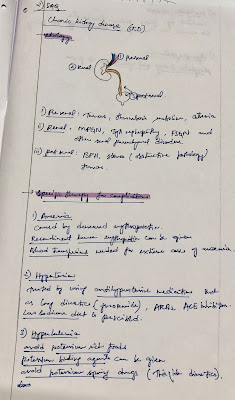 SAQ
Chronic kidney disease (CKD)
etiology
① prerenal
② renal
③ postrenal
i) Prerenal: Tumors, thrombosis, embolism, atresia
ii) Renal: MPGN, IgA nephropathy, FSGN and
other renal parenchymal disorders
iii) postrenal: BPH, stones (obstructive pathology)
tumors
Specific therapy for complications
1) Anaemia
caused by decreased erythropoietin.
Recombinant human erythropoietin can be given
Blood transfusions needed for extreme cases of anaemia
2) Hypertension
treated by using antihypertensive medications such
as loop diuretics (furosemide), ARBs, ACE inhibitors.
Low sodium diet to be prescribed.
3) Hyperkalemia
avoid potassium rich foods
potassium binding agents can be given
avoid potassium sparing drugs (Thiazide diuretics),